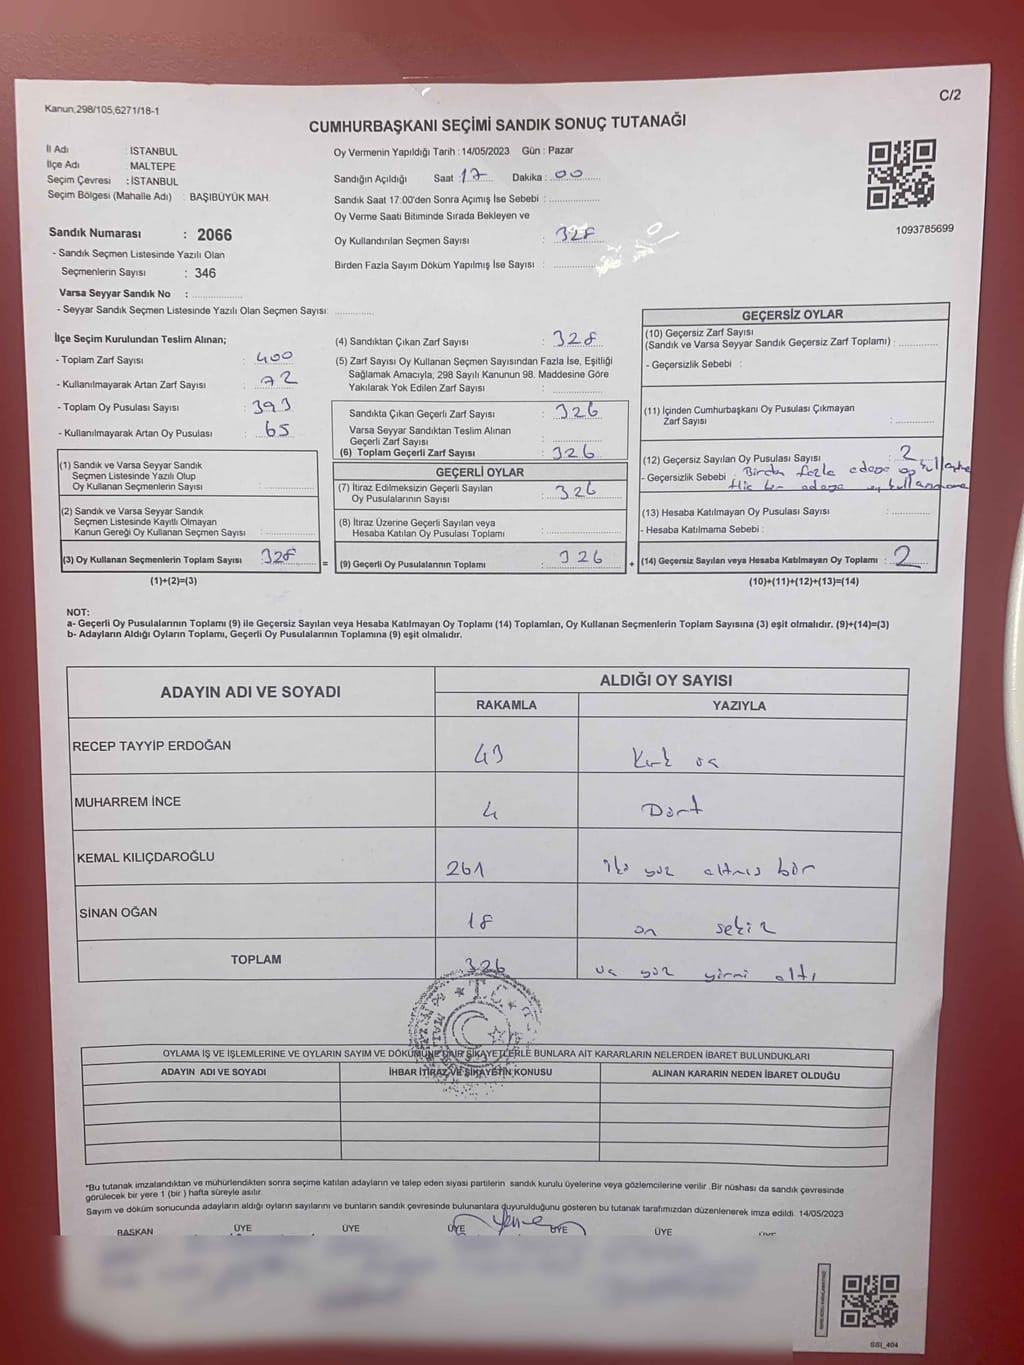 Kanun;298/105,6271/18-1
C/2
CUMHURBAŞKANI SEÇİMİ SANDIK SONUÇ TUTANAĞI
İl Adı : İSTANBUL
İlçe Adı : MALTEPE
Seçim Çevresi : İSTANBUL
Seçim Bölgesi (Mahalle Adı) : BAŞIBÜYÜK MAH.
Sandık Numarası : 2066
- Sandık Seçmen Listesinde Yazılı Olan
Seçmenlerin Sayısı : 346
Varsa Seyyar Sandık No :
- Seyyar Sandık Seçmen Listesinde Yazılı Olan Seçmen Sayısı:
Oy Vermenin Yapıldığı Tarih : 14/05/2023 Gün : Pazar
Sandığın Açıldığı Saat : 17 Dakika : 00
Sandık Saat 17:00'den Sonra Açımış İse Sebebi :
Oy Verme Saati Bitiminde Sırada Bekleyen ve
Oy Kullandırılan Seçmen Sayısı : 328
Birden Fazla Sayım Döküm Yapılmış İse Sayısı :
1093785699
İlçe Seçim Kurulundan Teslim Alınan;
- Toplam Zarf Sayısı : 400
- Kullanılmayarak Artan Zarf Sayısı : 72
- Toplam Oy Pusulası Sayısı : 393
- Kullanılmayarak Artan Oy Pusulası : 65
(1) Sandık ve Varsa Seyyar Sandık
Seçmen Listesinde Yazılı Olup
Oy Kullanan Seçmenlerin Sayısı :
(2) Sandık ve Varsa Seyyar Sandık
Seçmen Listesinde Kayıtlı Olmayan
Kanun Gereği Oy Kullanan Seçmen Sayısı :
(3) Oy Kullanan Seçmenlerin Toplam Sayısı : 328
(1)+(2)=(3)
(4) Sandıktan Çıkan Zarf Sayısı : 328
(5) Zarf Sayısı Oy Kullanan Seçmen Sayısından Fazla İse, Eşitliği
Sağlamak Amacıyla; 298 Sayılı Kanunun 98. Maddesine Göre
Yakılarak Yok Edilen Zarf Sayısı :
Sandıkta Çıkan Geçerli Zarf Sayısı : 326
Varsa Seyyar Sandıktan Teslim Alınan
Geçerli Zarf Sayısı :
(6) Toplam Geçerli Zarf Sayısı : 326
GEÇERLİ OYLAR
(7) İtiraz Edilmeksizin Geçerli Sayılan
Oy Pusulalarının Sayısı : 326
(8) İtiraz Üzerine Geçerli Sayılan veya
Hesaba Katılan Oy Pusulası Toplamı :
= (9) Geçerli Oy Pusulalarının Toplamı : 326
GEÇERSİZ OYLAR
(10) Geçersiz Zarf Sayısı
(Sandık ve Varsa Seyyar Sandık Geçersiz Zarf Toplamı) :
- Geçersizlik Sebebi :
(11) İçinden Cumhurbaşkanı Oy Pusulası Çıkmayan
Zarf Sayısı :
(12) Geçersiz Sayılan Oy Pusulası Sayısı : 2
- Geçersizlik Sebebi : Birden fazla adaya oy kullanma
Hiç bir adaya oy kullanmama
(13) Hesaba Katılmayan Oy Pusulası Sayısı :
- Hesaba Katılmama Sebebi :
+ (14) Geçersiz Sayılan veya Hesaba Katılmayan Oy Toplamı : 2
(10)+(11)+(12)+(13)=(14)
NOT:
a- Geçerli Oy Pusulalarının Toplamı (9) ile Geçersiz Sayılan veya Hesaba Katılmayan Oy Toplamı (14) Toplamları, Oy Kullanan Seçmenlerin Toplam Sayısına (3) eşit olmalıdır. (9)+(14)=(3)
b- Adayların Aldığı Oyların Toplamı, Geçerli Oy Pusulalarının Toplamına (9) eşit olmalıdır.
ADAYIN ADI VE SOYADI ALDIĞI OY SAYISI
RAKAMLA YAZIYLA
RECEP TAYYİP ERDOĞAN 43 Kırk üç
MUHARREM İNCE 4 Dört
KEMAL KILIÇDAROĞLU 261 iki yüz altmış bir
SİNAN OĞAN 18 on sekiz
TOPLAM 326 üç yüz yirmi altı
T.C.
OYLAMA İŞ VE İŞLEMLERİNE VE OYLARIN SAYIM VE DÖKÜMÜNE DAİR ŞİKAYETLERLE BUNLARA AİT KARARLARIN NELERDEN İBARET BULUNDUKLARI
ADAYIN ADI VE SOYADI İHBAR İTİRAZ VE ŞİKAYETİN KONUSU ALINAN KARARIN NEDEN İBARET OLDUĞU
*Bu tutanak imzalandıktan ve mühürlendikten sonra seçime katılan adayların ve talep eden siyasi partilerin sandık kurulu üyelerine veya gözlemcilerine verilir .Bir nüshası da sandık çevresinde
görülecek bir yere 1 (bir ) hafta süreyle asılır.
Sayım ve döküm sonucunda adayların aldığı oyların sayılarını ve bunların sandık çevresinde bulunanlara duyurulduğunu gösteren bu tutanak tarafımızdan düzenlenerek imza edildi. 14/05/2023
BAŞKAN ÜYE ÜYE ÜYE ÜYE ÜYE
SSI_404